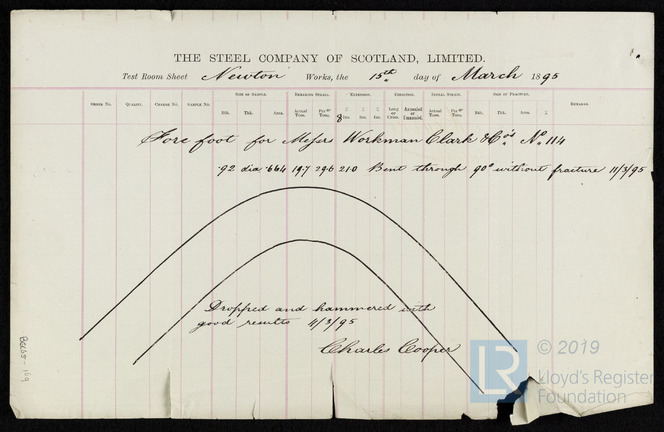 THE STEEL COMPANY OF SCOTLAND, LIMITED.
Test Room Sheet Newton Works, the 15th day of March 1895
SIZE OF SAMPLE. BREAKING STRAIN. EXTENSION. CONDITION. INITIAL STRAIN. SIZE OF FRACTURE.
ORDER No. QUALITY. CHARGE No. SAMPLE No. Bth. Thk. Area. Actual Tons. Per □" Tons. 8 Ins. Ins. Ins. Long or Cross. Annealed or Unanneald. Actual Tons. Per □" Tons. Bth. Thk. Area. % REMARKS.
Fore foot for Messrs Workman Clark & Co's No. 114
·92 dia ·664 19·7 29·6 21·0 Bent through 90° without fracture 11/3/95
Dropped and hammered with
good results 11/3/95
Charles Cooper
LR © 2019
Lloyd's Register
Foundation